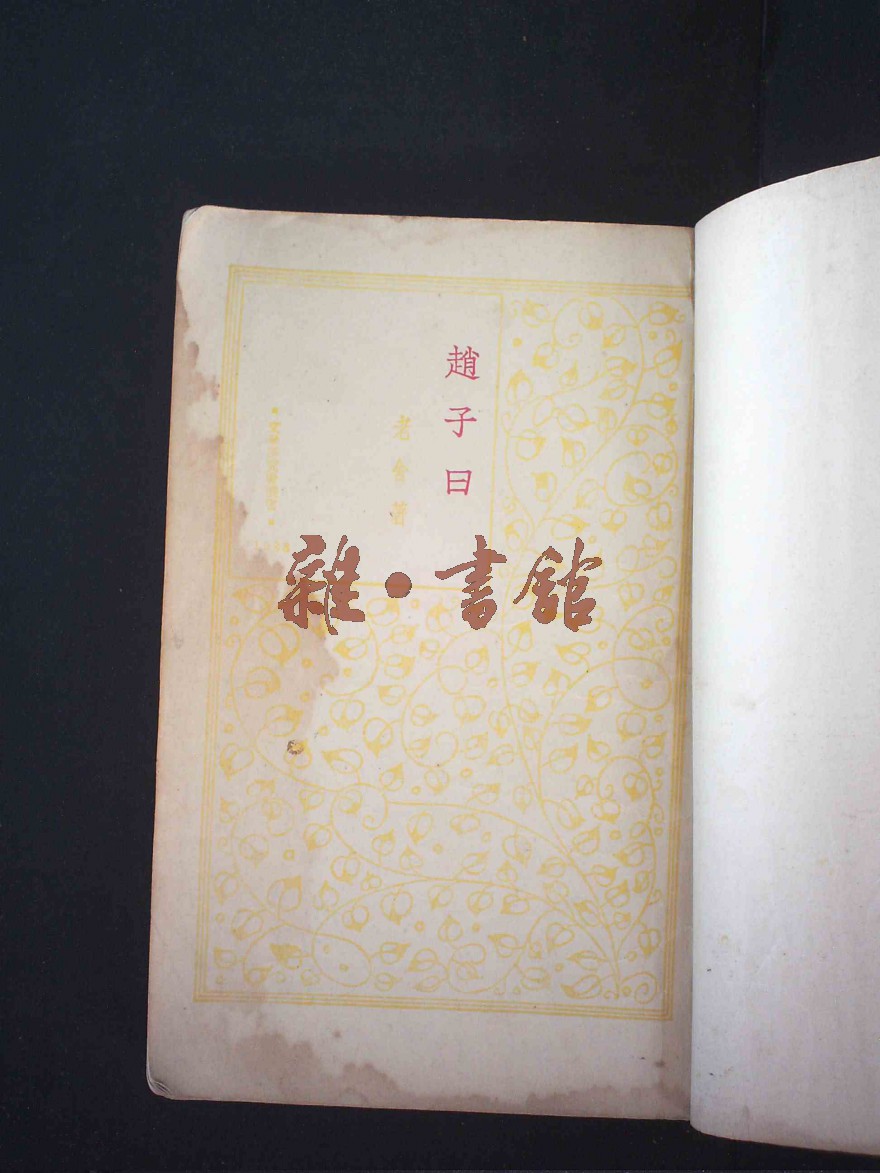 趙子曰
老舍著
雜•書館